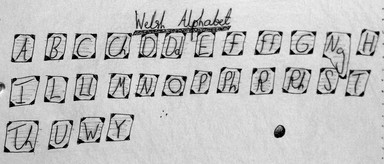 Welsh Alphabet
A B C Ch D Dd E F ff G Ng H
I L Ll M N O P Ph R Rh S T
Th U W Y